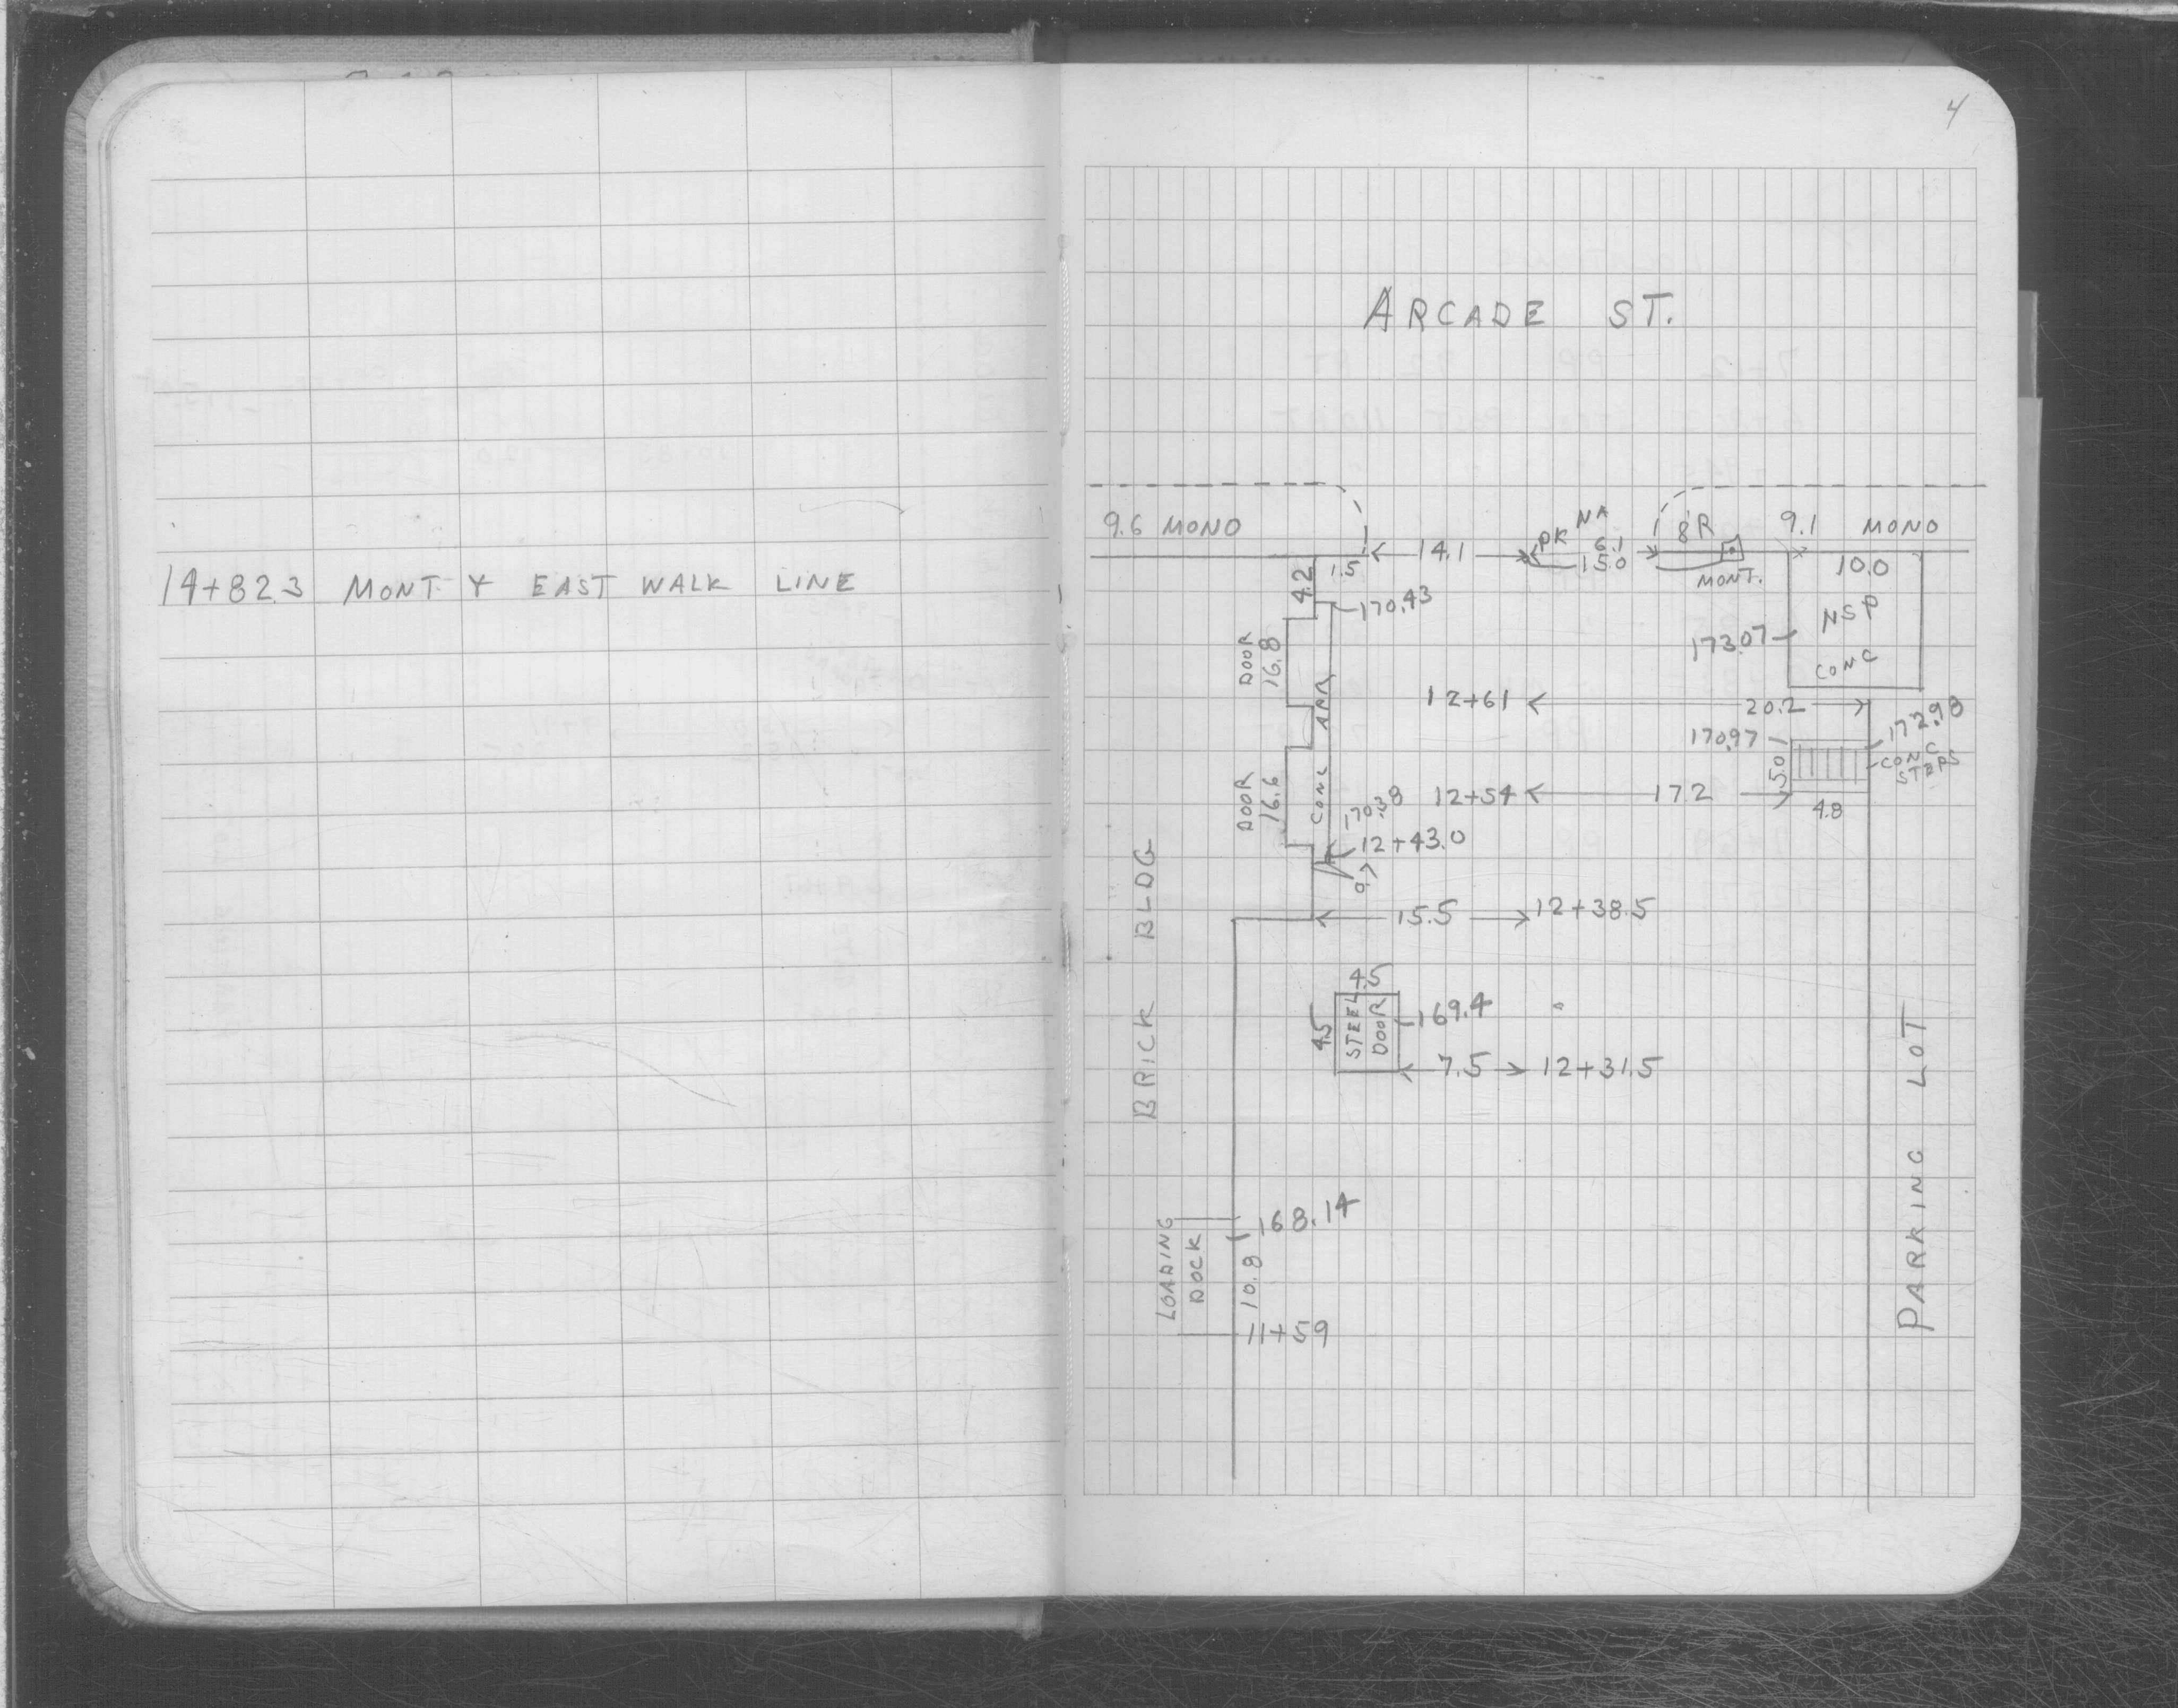 4
ARCADE ST.
9.6 MONO
14.1
PK NA
6.1
15.0
8R
9.1 MONO
MONT.
14+82.3 MONT & EAST WALK LINE
4.2
1.5
170.43
10.0
NSP
CONC
173.07
DOOR
16.8
CONC APR
12+61
20.2
170.97
172.98
CONC
STEPS
5.0
4.8
DOOR
16.6
170.38
12+54
17.2
12+43.0
0.7
15.5
12+38.5
BRICK BLDG
4.5
4.5
STEEL
DOOR
169.4
7.5
12+31.5
PARKING LOT
168.14
LOADING
DOCK
10.8
11+59